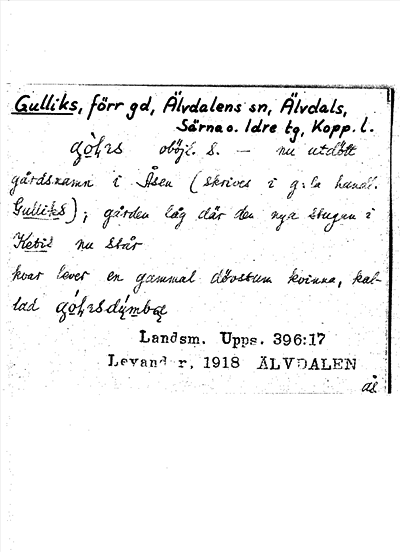 Gulliks, förr gd, Älvdalens sn, Älvdals,
Särna o. Idre tg, Kopp. l.
oböjl. s. — nu utdött
gårdsnamn i Åsen (skrives i g:la handl.
Gulliks); gården låg där den nya stugan i
Ketis nu står
kvar lever en gammal dövstum kvinna, kal-
lad
Landsm. Upps. 396:17
Levander, 1918 ÄLVDALEN
ås